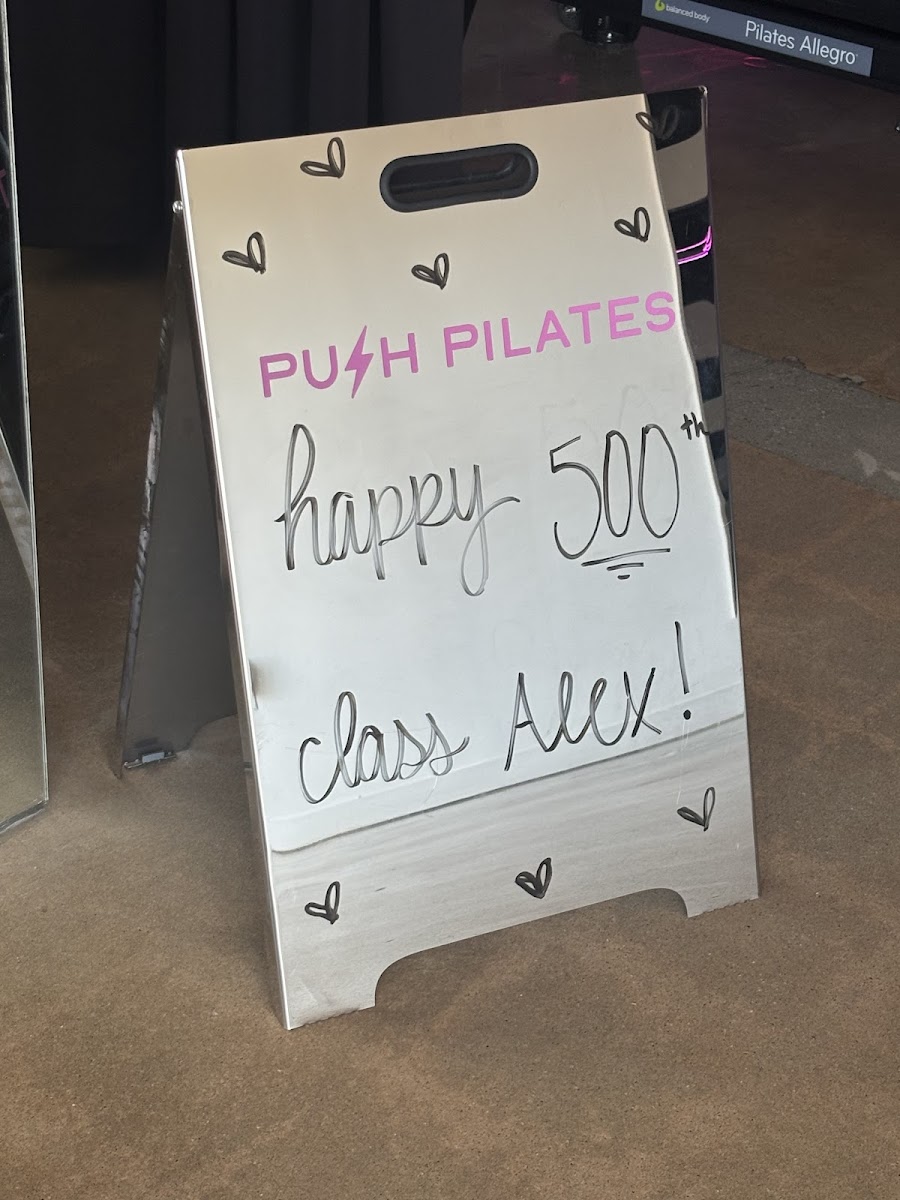 balanced body
Pilates Allegro
PUSH PILATES
happy 500th
class Alex!